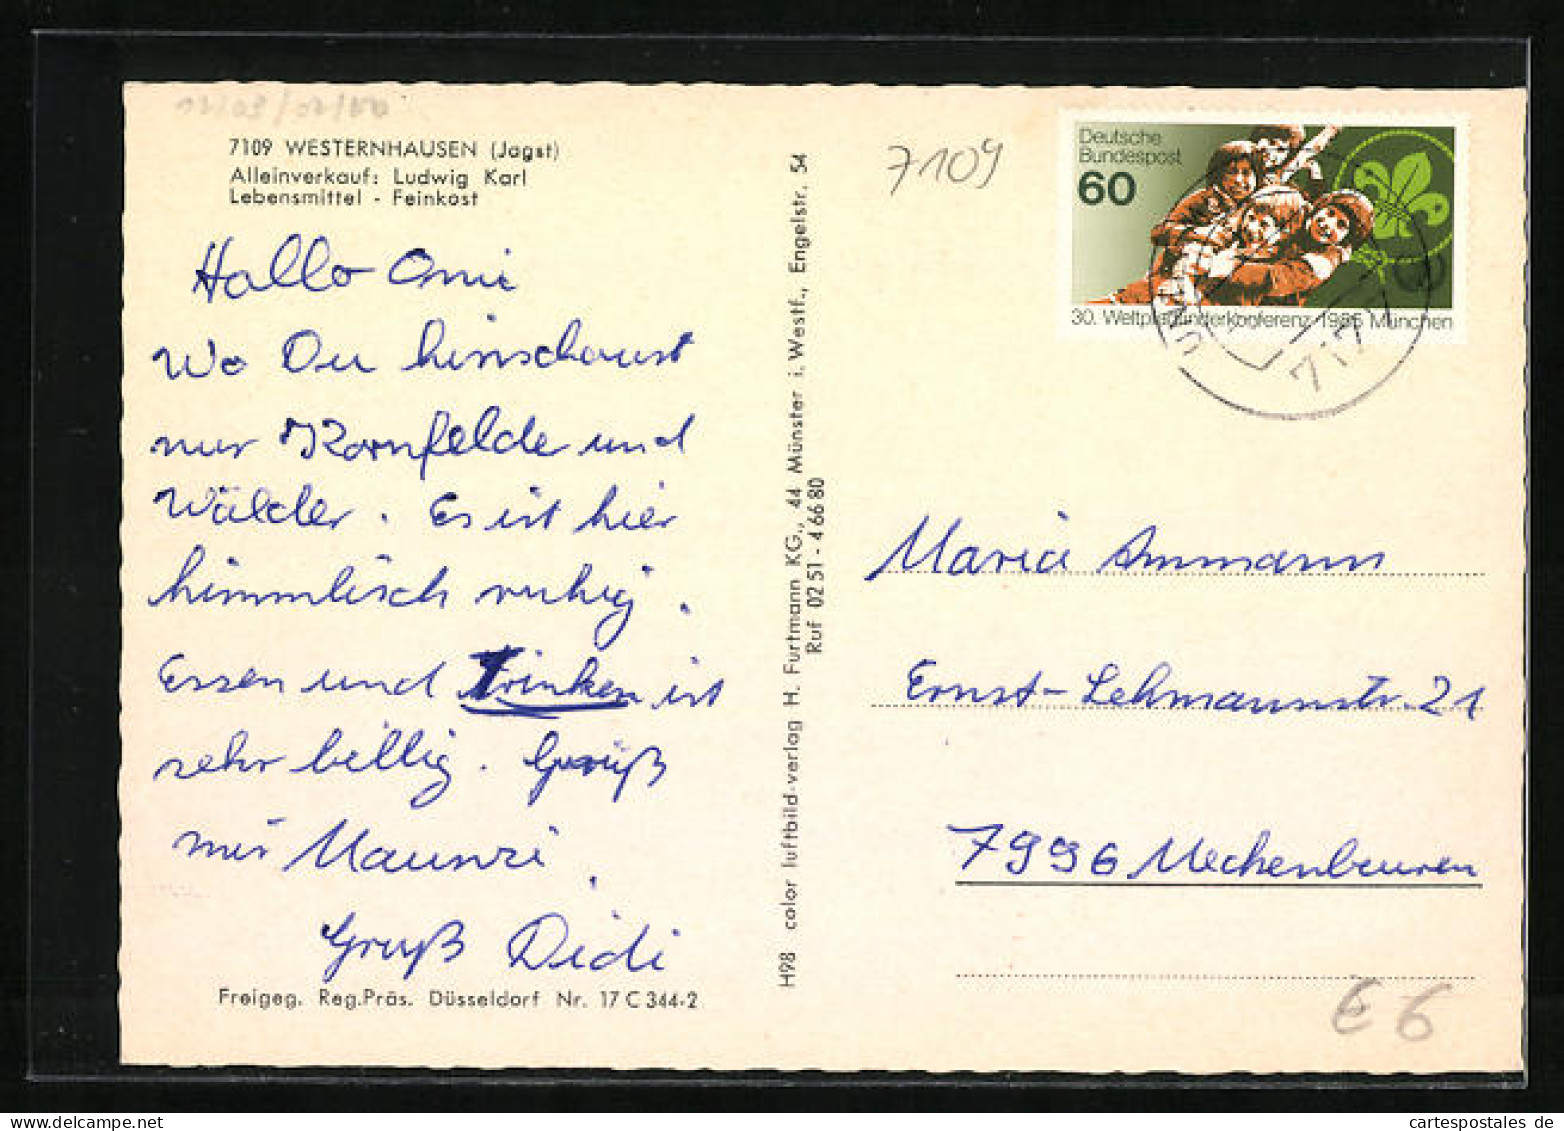 7109 WESTERNHAUSEN (Jagst)
Alleinverkauf: Ludwig Karl
Lebensmittel - Feinkost
Hallo Omi
Wo Du hinschaust
nur Kornfelde und
Wälder. Es ist hier
himmlisch ruhig.
Essen und Trinken ist
sehr billig. Grüß
mir Maunzi.
Gruß Didi
Freigeg. Reg.Präs. Düsseldorf Nr. 17 C 344-2
H98 color luftbild-verlag H. Furtmann KG., 44 Münster i. Westf., Engelstr. 54
Ruf 02 51 - 4 66 80
7109
Deutsche
Bundespost
60
30. Weltpfadfinderkonferenz 1985 München
Maria Ammann
Ernst-Lehmannstr. 21
7996 Meckenbeuren
E 6
cartespostales.de